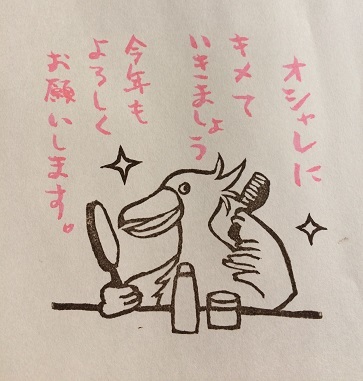 オシャレに
キメて
いきましょう
今年も
よろしく
お願いします。